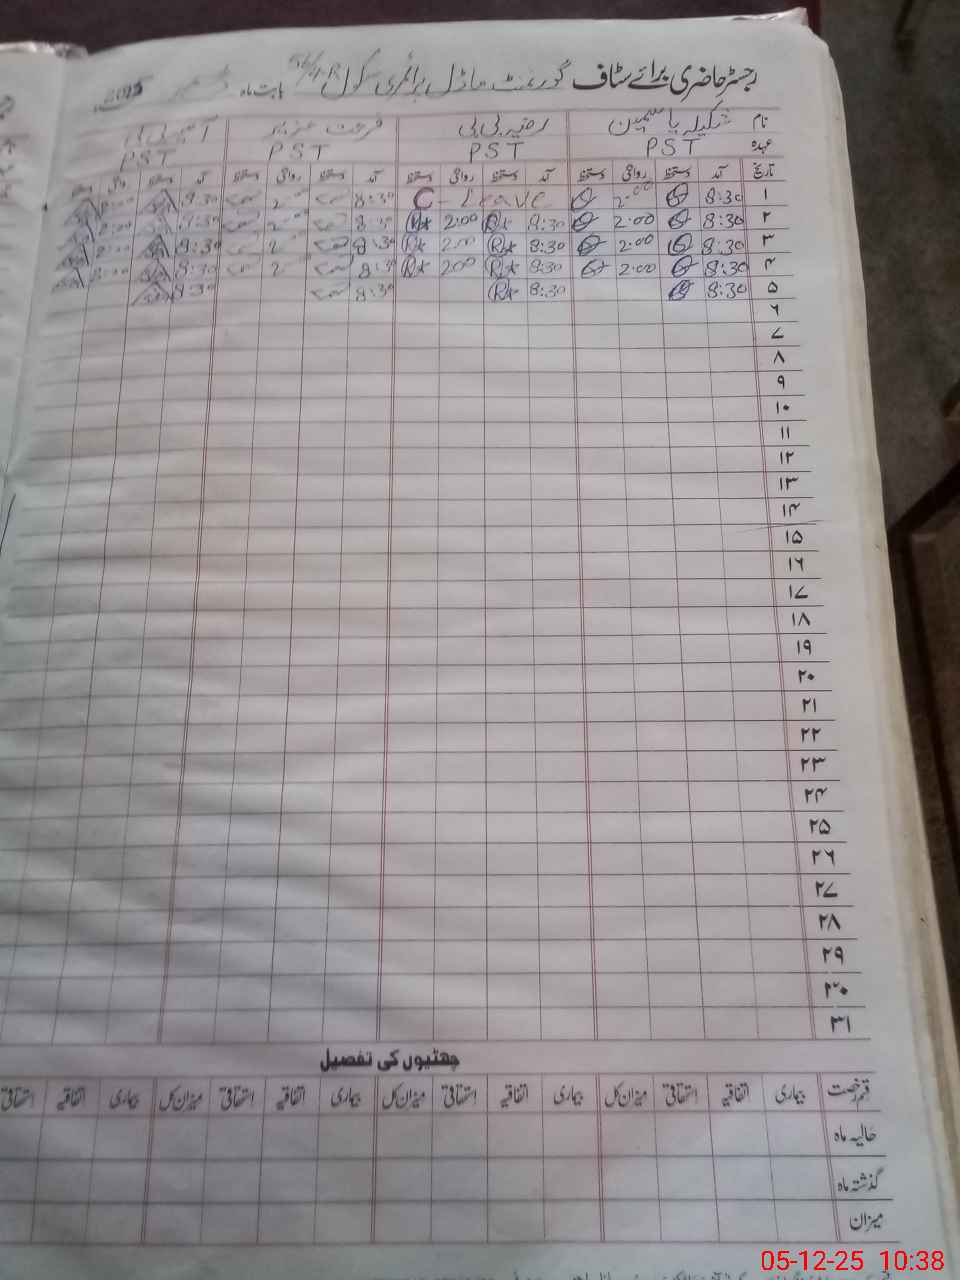 رجسٹر حاضری برائے سٹاف گورنمنٹ ماڈل پرائمری سکول 56/4-R بابت ماہ دسمبر 2025
نام شکیلہ یاسمین رضیہ بی بی فرحت عزیز آسیہ بی بی
عہدہ PST PST PST PST
تاریخ آمد دستخط روانگی دستخط آمد دستخط روانگی دستخط آمد دستخط روانگی دستخط آمد دستخط روانگی دستخط
۱ 8:30 2:00 C - Leave 8:30 2:00 8:30 2:00
۲ 8:30 2:00 8:30 2:00 8:30 2:00 8:30 2:00
۳ 8:30 2:00 8:30 2:00 8:30 2:00 8:30 2:00
۴ 8:30 2:00 8:30 2:00 8:30 2:00 8:30 2:00
۵ 8:30 8:30 8:30 8:30
۶
۷
۸
۹
۱۰
۱۱
۱۲
۱۳
۱۴
۱۵
۱۶
۱۷
۱۸
۱۹
۲۰
۲۱
۲۲
۲۳
۲۴
۲۵
۲۶
۲۷
۲۸
۲۹
۳۰
۳۱
چھٹیوں کی تفصیل
قسم رخصت بیماری اتفاقیہ استحقاقی میزان کل بیماری اتفاقیہ استحقاقی میزان کل بیماری اتفاقیہ استحقاقی میزان کل بیماری اتفاقیہ استحقاقی
حالیہ ماہ
گذشتہ ماہ
میزان
05-12-25 10:38